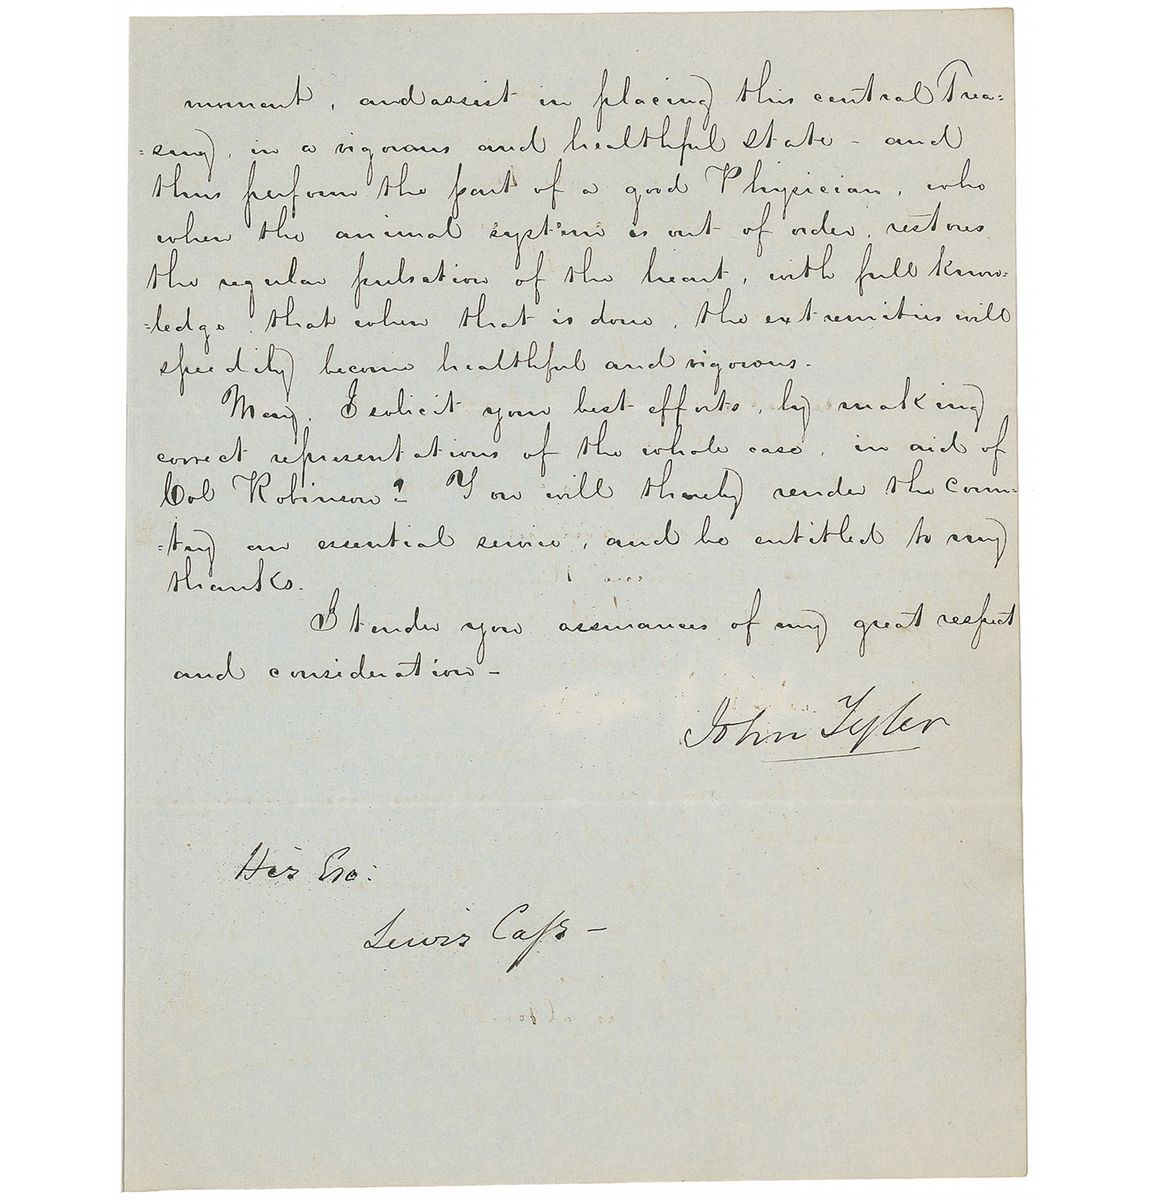 moment, and assist in placing this central Trea=
=sury, in a vigorous and healthful state - and
thus perform the part of a good Physician, who
when the animal system is out of order, restores
the regular pulsation of the heart, with full know=
=ledge that when that is done, the extremities will
speedily become healthful and vigorous.
May I solicit your best efforts, by making
correct representations of the whole case, in aid of
Col Robinson? You will thereby render the coun=
=try an essential service, and be entitled to my
thanks.
I tender you assurances of my great respect
and consideration -
John Tyler
His Exc:
Lewis Cass -